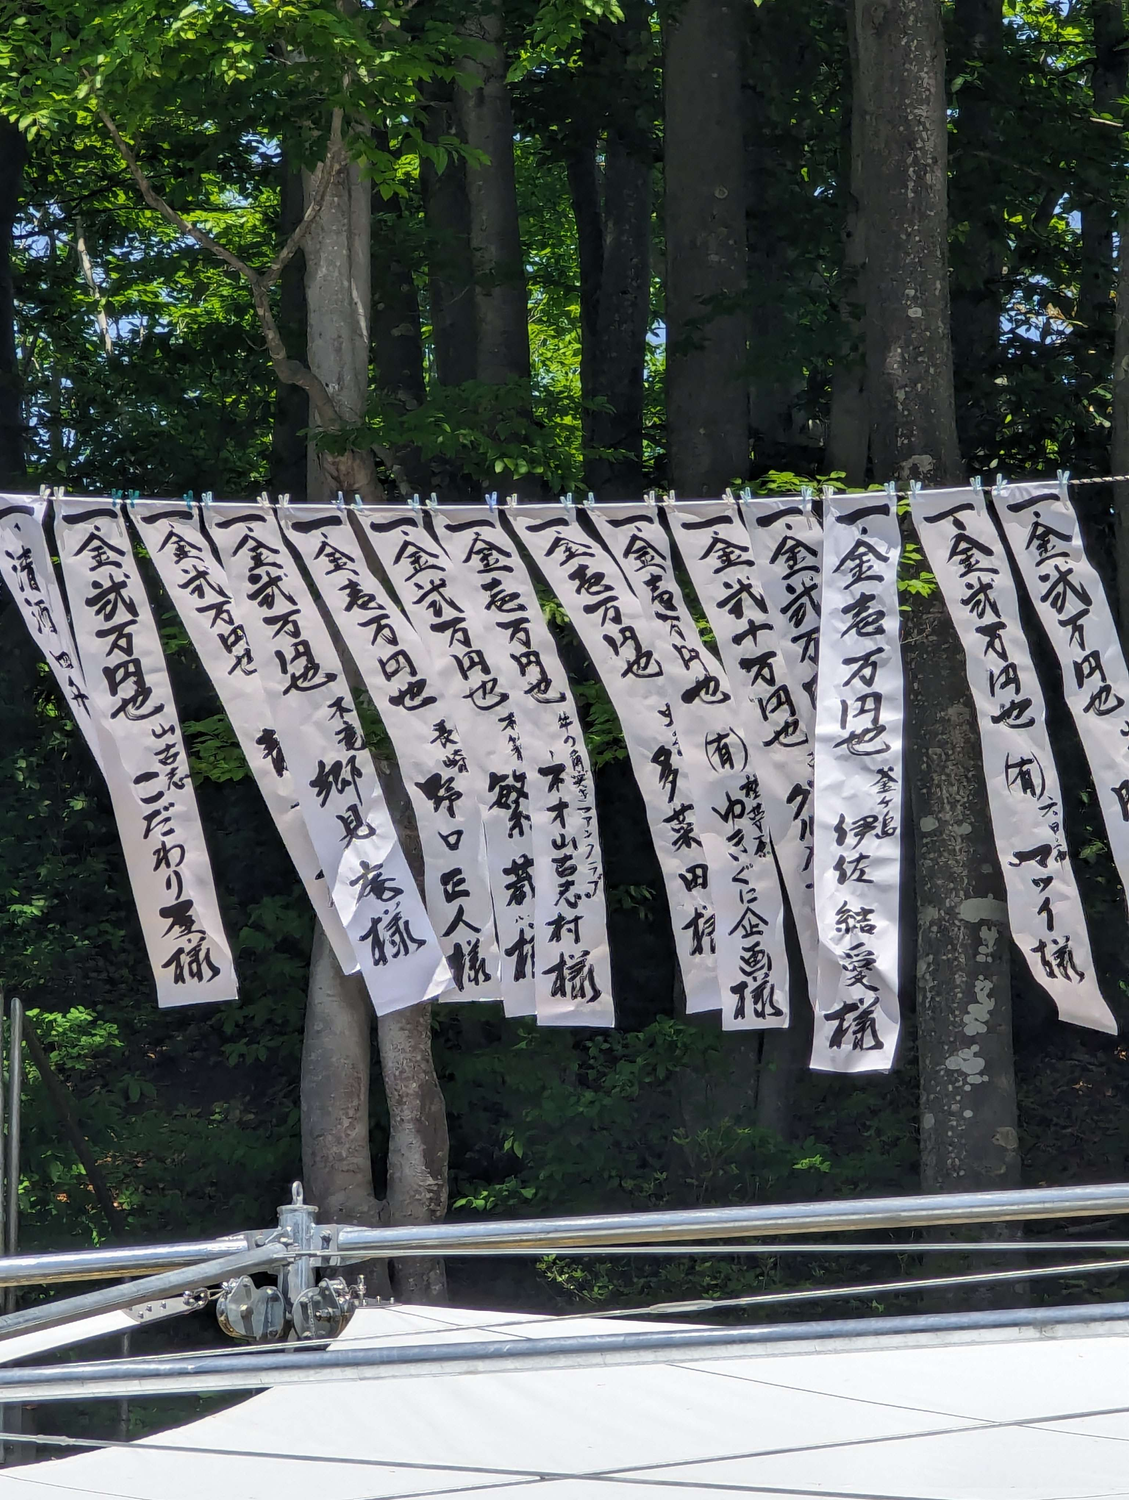 一、金弐万円也
一、金弐万円也 (有) 六日市 マツイ様
一、金壱万円也 釜ヶ島 伊佐 結愛様
一、金弐万
一、金弐十万円也 (有) ゆきぐに企画様
一、金壱万円也 多菜田様
一、金壱万円也 牛の角突きファンクラブ 山古志村様
一、金壱万円也 木篭 繁蔵 様
一、金弐万円也 長崎 野口 正人様
一、金壱万円也
一、金弐万円也 木篭 郷見庵様
一、金弐万円也
一、金弐万円也 山古志 こだわり屋様
一、清酒